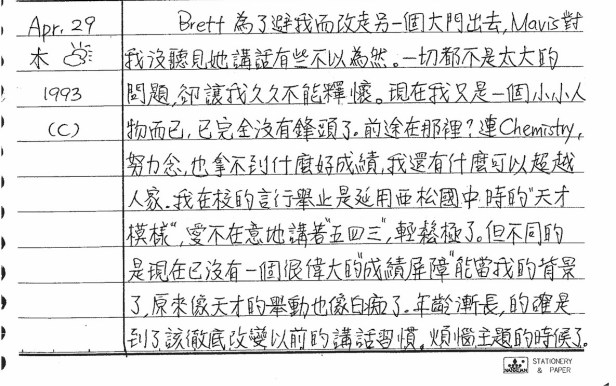 Apr. 29
木
1993
(C)
Brett 為了避我而改走另一個大門出去,Mavis對
我沒聽見她講話有些不以為然。一切都不是太大的
問題,卻讓我久久不能釋懷。現在我又是一個小小人
物而已,已完全沒有鋒頭了。前途在那裡?連Chemistry,
努力念,也拿不到什麼好成績,我還有什麼可以超越
人家。我在校的言行舉止是延用西松國中時的"天才
模樣",愛不在意地講著"五四三",輕鬆極了。但不同的
是現在已沒有一個很偉大的"成績屏障"能當我的背景
了,原來像天才的舉動也像白痴了。年齡漸長,的確是
到了該徹底改變以前的講話習慣。煩惱主題的時候了。
STATIONERY
& PAPER